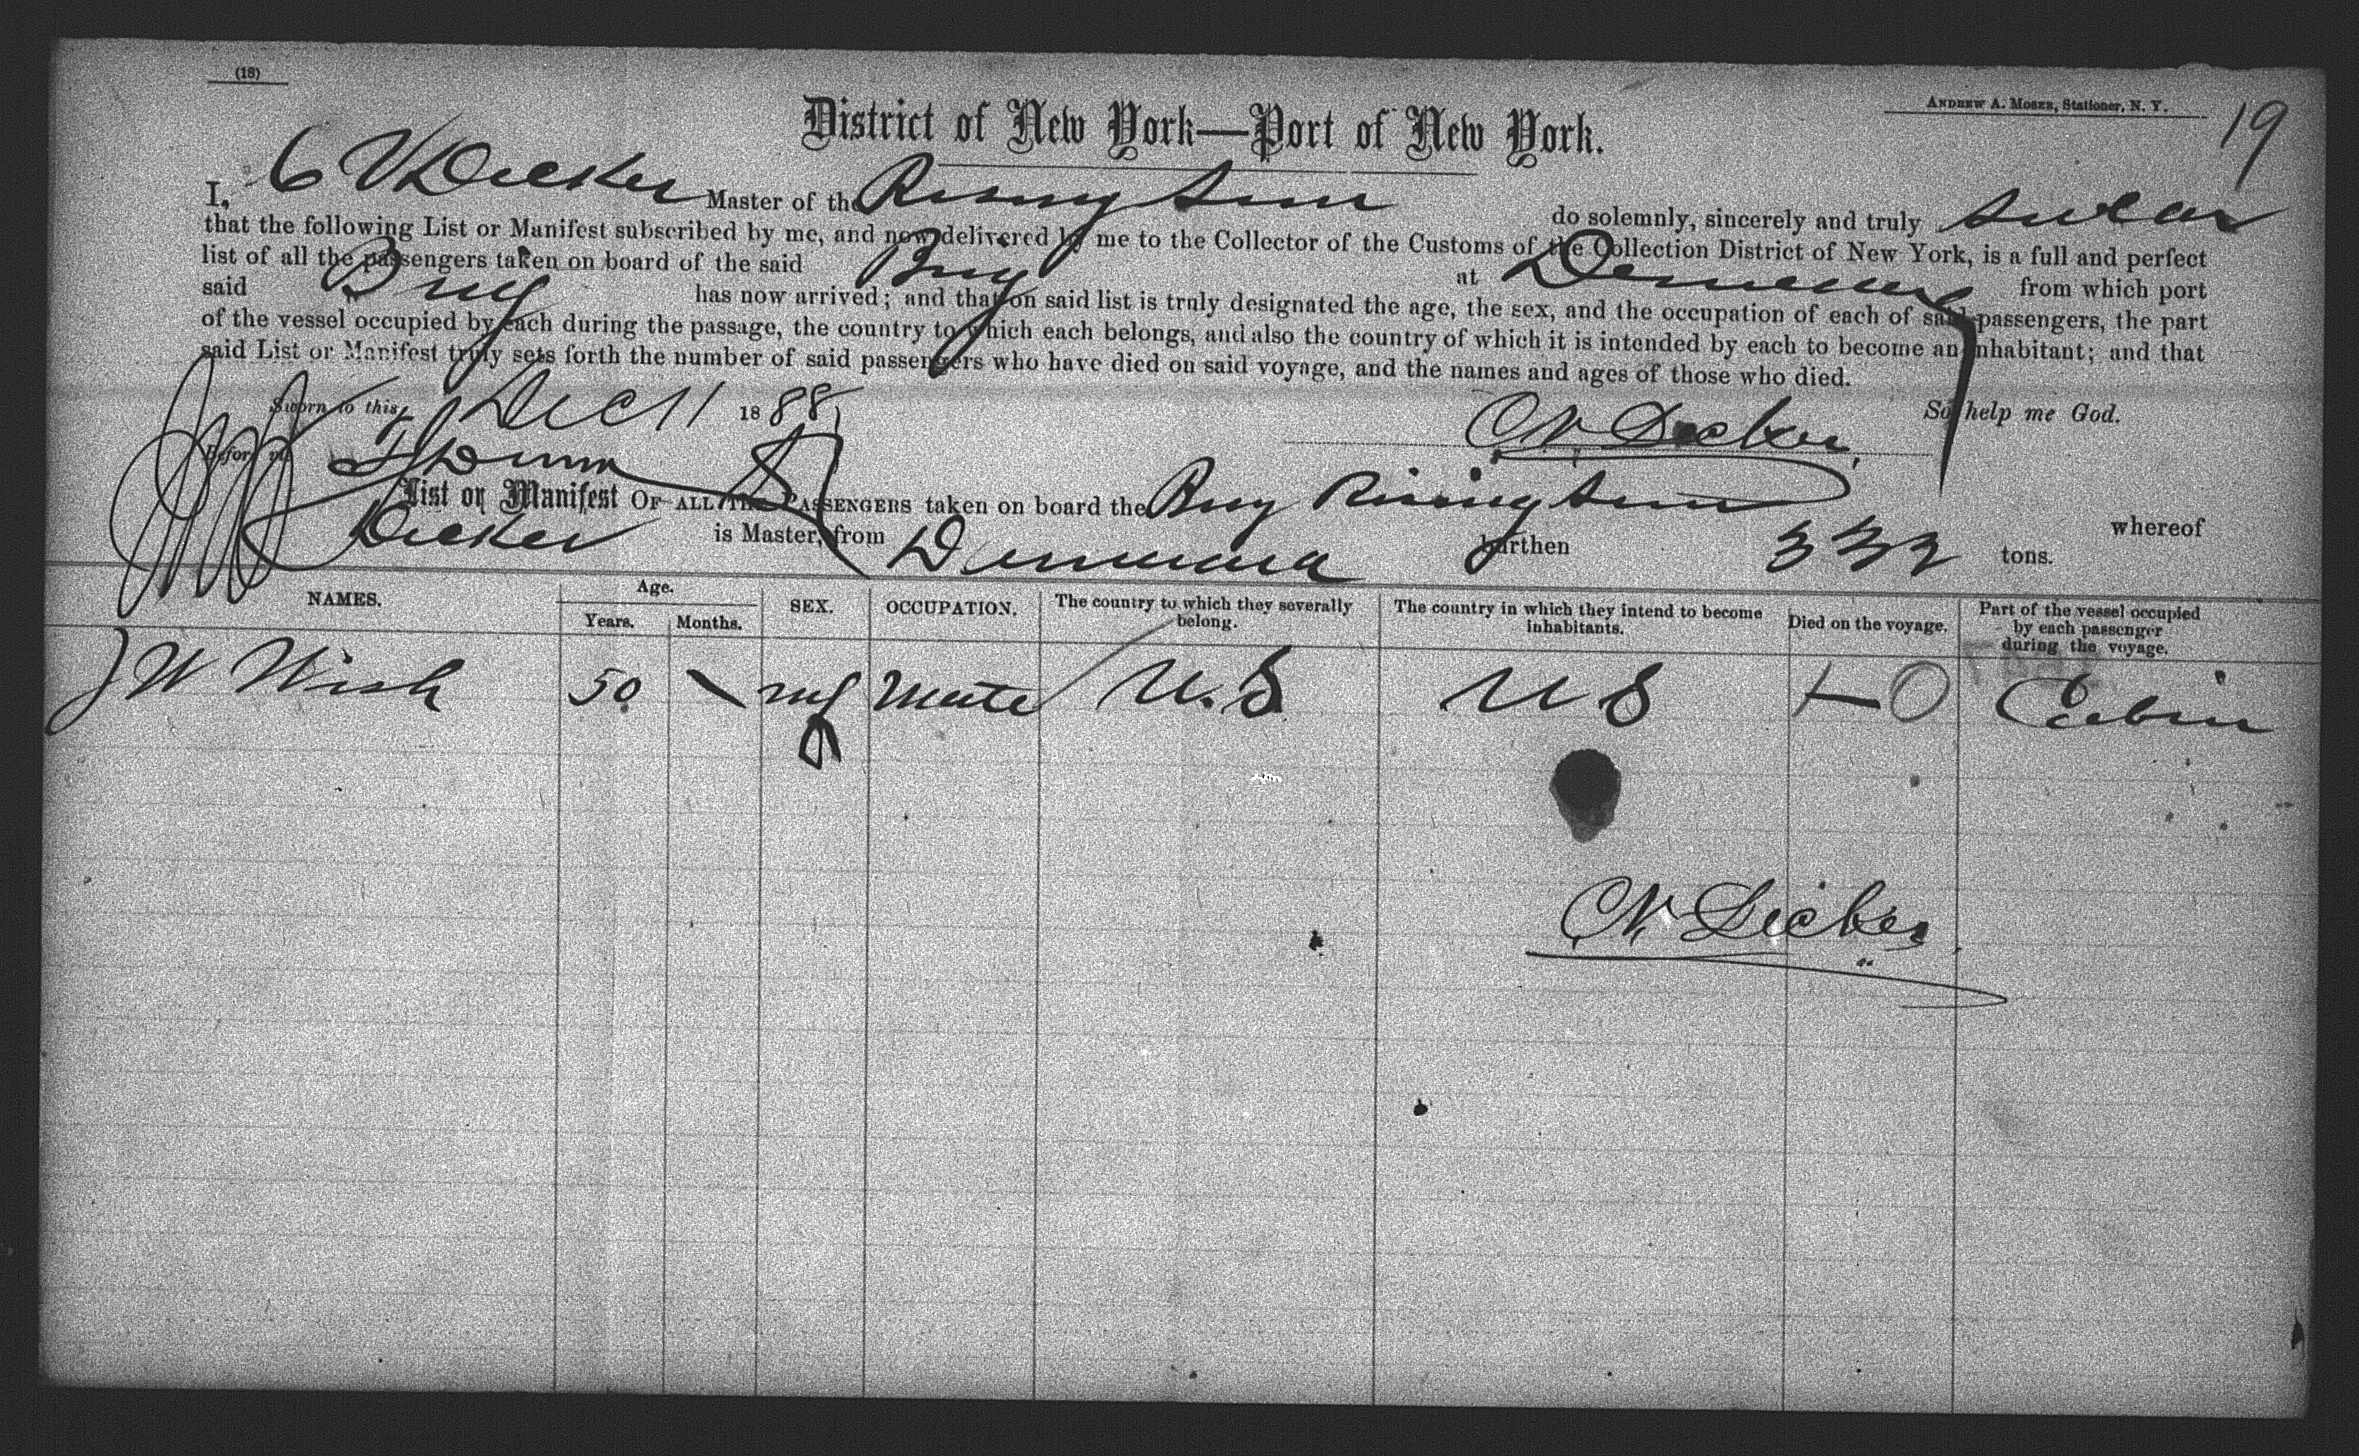 (18)
ANDREW A. MOSES, Stationer, N. Y.
19
District of New York—Port of New York.
I, C V Decker Master of the Rising Sun do solemnly, sincerely and truly swear
that the following List or Manifest subscribed by me, and now delivered by me to the Collector of the Customs of the Collection District of New York, is a full and perfect
list of all the passengers taken on board of the said Brig at Demerara from which port
said Brig has now arrived; and that on said list is truly designated the age, the sex, and the occupation of each of said passengers, the part
of the vessel occupied by each during the passage, the country to which each belongs, and also the country of which it is intended by each to become an inhabitant; and that
said List or Manifest truly sets forth the number of said passengers who have died on said voyage, and the names and ages of those who died.
Sworn to this Dec 11 1888 So help me God.
Before me C V Decker
List or Manifest OF ALL THE PASSENGERS taken on board the Brig Rising Sun whereof
Decker is Master, from Demerara burthen 332 tons.
NAMES. Age. Years. Months. SEX. OCCUPATION. The country to which they severally belong. The country in which they intend to become inhabitants. Died on the voyage. Part of the vessel occupied by each passenger during the voyage.
J W Wish 50 m Mate U.S U S 0 Cabin
C V Decker